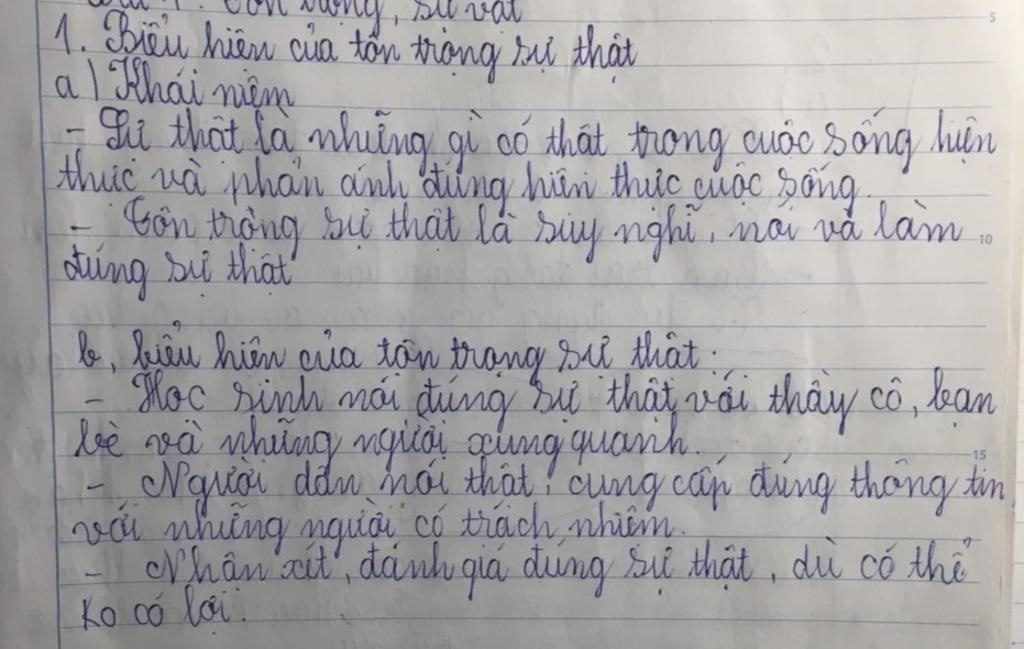 Tôn trọng, sự vật
1. Biểu hiện của tôn trọng sự thật
a) Khái niệm
- Sự thật là những gì có thật trong cuộc sống hiện
thực và phản ánh đúng hiện thực cuộc sống.
- Tôn trọng sự thật là suy nghĩ, nói và làm
đúng sự thật
b, biểu hiện của tôn trọng sự thật:
- Học sinh nói đúng sự thật với thầy cô, bạn
bè và những người xung quanh.
- Người dân nói thật, cung cấp đúng thông tin
với những người có trách nhiệm.
- Nhận xít, đánh giá đúng sự thật, dù có thể
ko có lợi.
5
10
15